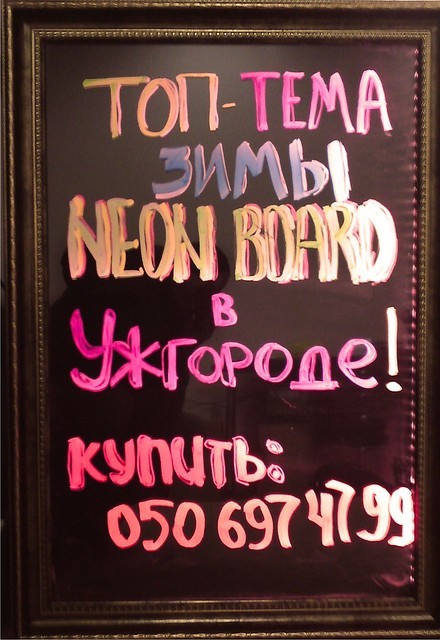 ТОП-ТЕМА
ЗИМЫ
NEON BOARD
В
УЖГОРОДЕ!
КУПИТЬ:
050 697 47 99